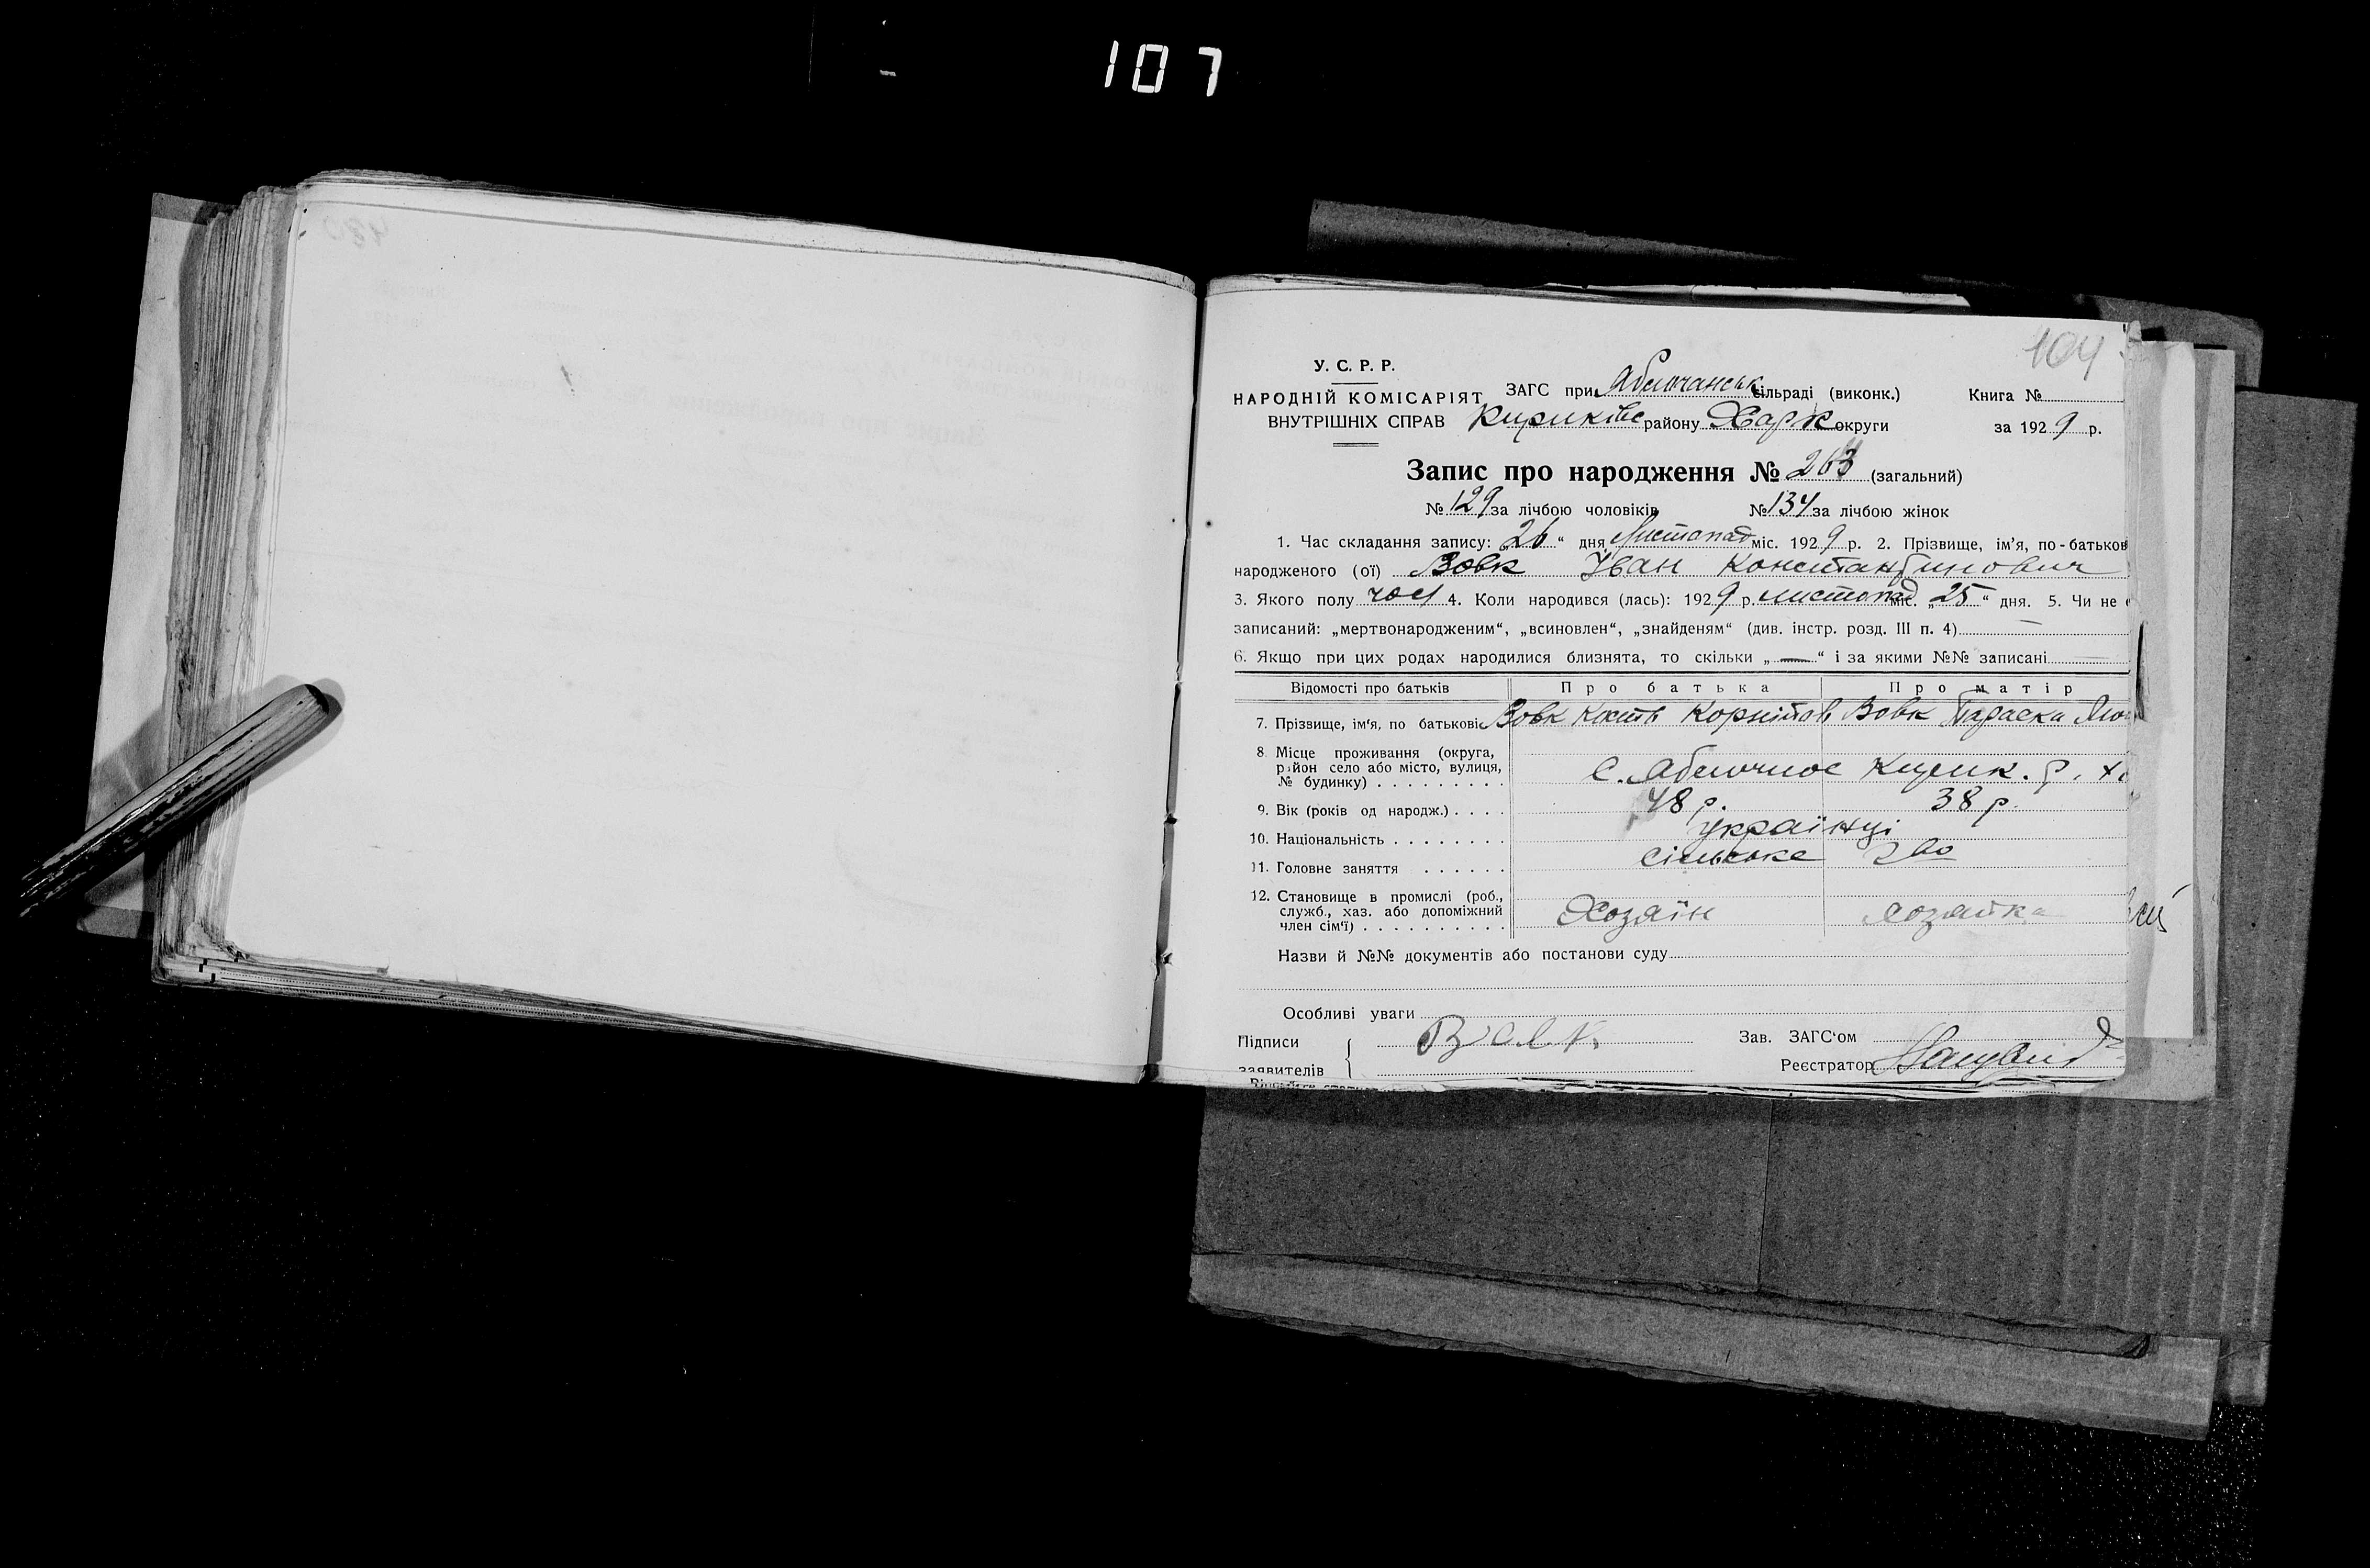 107
104
У. С. Р. Р.
НАРОДНІЙ КОМІСАРІЯТ
ВНУТРІШНІХ СПРАВ
ЗАГС при Яблочанськ сільраді (виконк.)
Книга №
Кириківс району Харк округи
за 1929 р.
Запис про народження № 263 (загальний)
№ 129 за лічбою чоловіків № 134 за лічбою жінок
1. Час складання запису: „26“ дня Листопад міс. 1929 р. 2. Прізвище, ім’я, по-батьков
народженого (ої) Вовк Іван Константинович
3. Якого полу чол 4. Коли народився (лась): 1929 р. листопад міс. „25“ дня. 5. Чи не
записаний: „мертвонародженим“, „всиновлен“, „знайденям“ (див. інстр. розд. III п. 4) —
6. Якщо при цих родах народилися близнята, то скільки „—“ і за якими №№ записані
Відомості про батьків Про батька Про матір
7. Прізвище, ім‘я, по батькові Вовк Кость Вовк Параска
8. Місце проживання (округа,
район село або місто, вулиця,
№ будинку) с. Яблочное Кирик. р. Х
9. Вік (років од народж.) 48 р. 38 р.
10. Національність українці
11. Головне заняття сільське г-во
12. Становище в промислі (роб.,
служб., хаз. або допоміжний
член сім‘ї) Хозяїн хозяйка
Назви й №№ документів або постанови суду
Особливі уваги
Підписи
заявителів
Зав. ЗАГС‘ом
Реєстратор